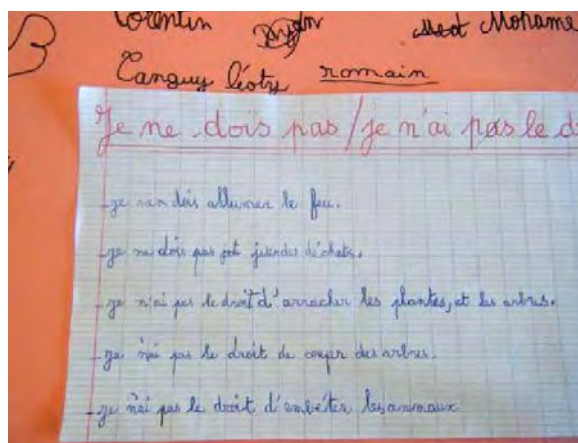 Corentin Mohame
Tanguy Léoty romain
Je ne dois pas / je n'ai pas le d
- je dois allumer le feu.
- je ne dois pas déchets.
- je n'ai pas le droit d'arracher les plantes, et les arbres.
- je n'ai pas le droit de couper des arbres.
- je n'ai pas le droit d'embéter les animaux